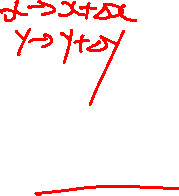 x→x+Δx
y→y+Δy